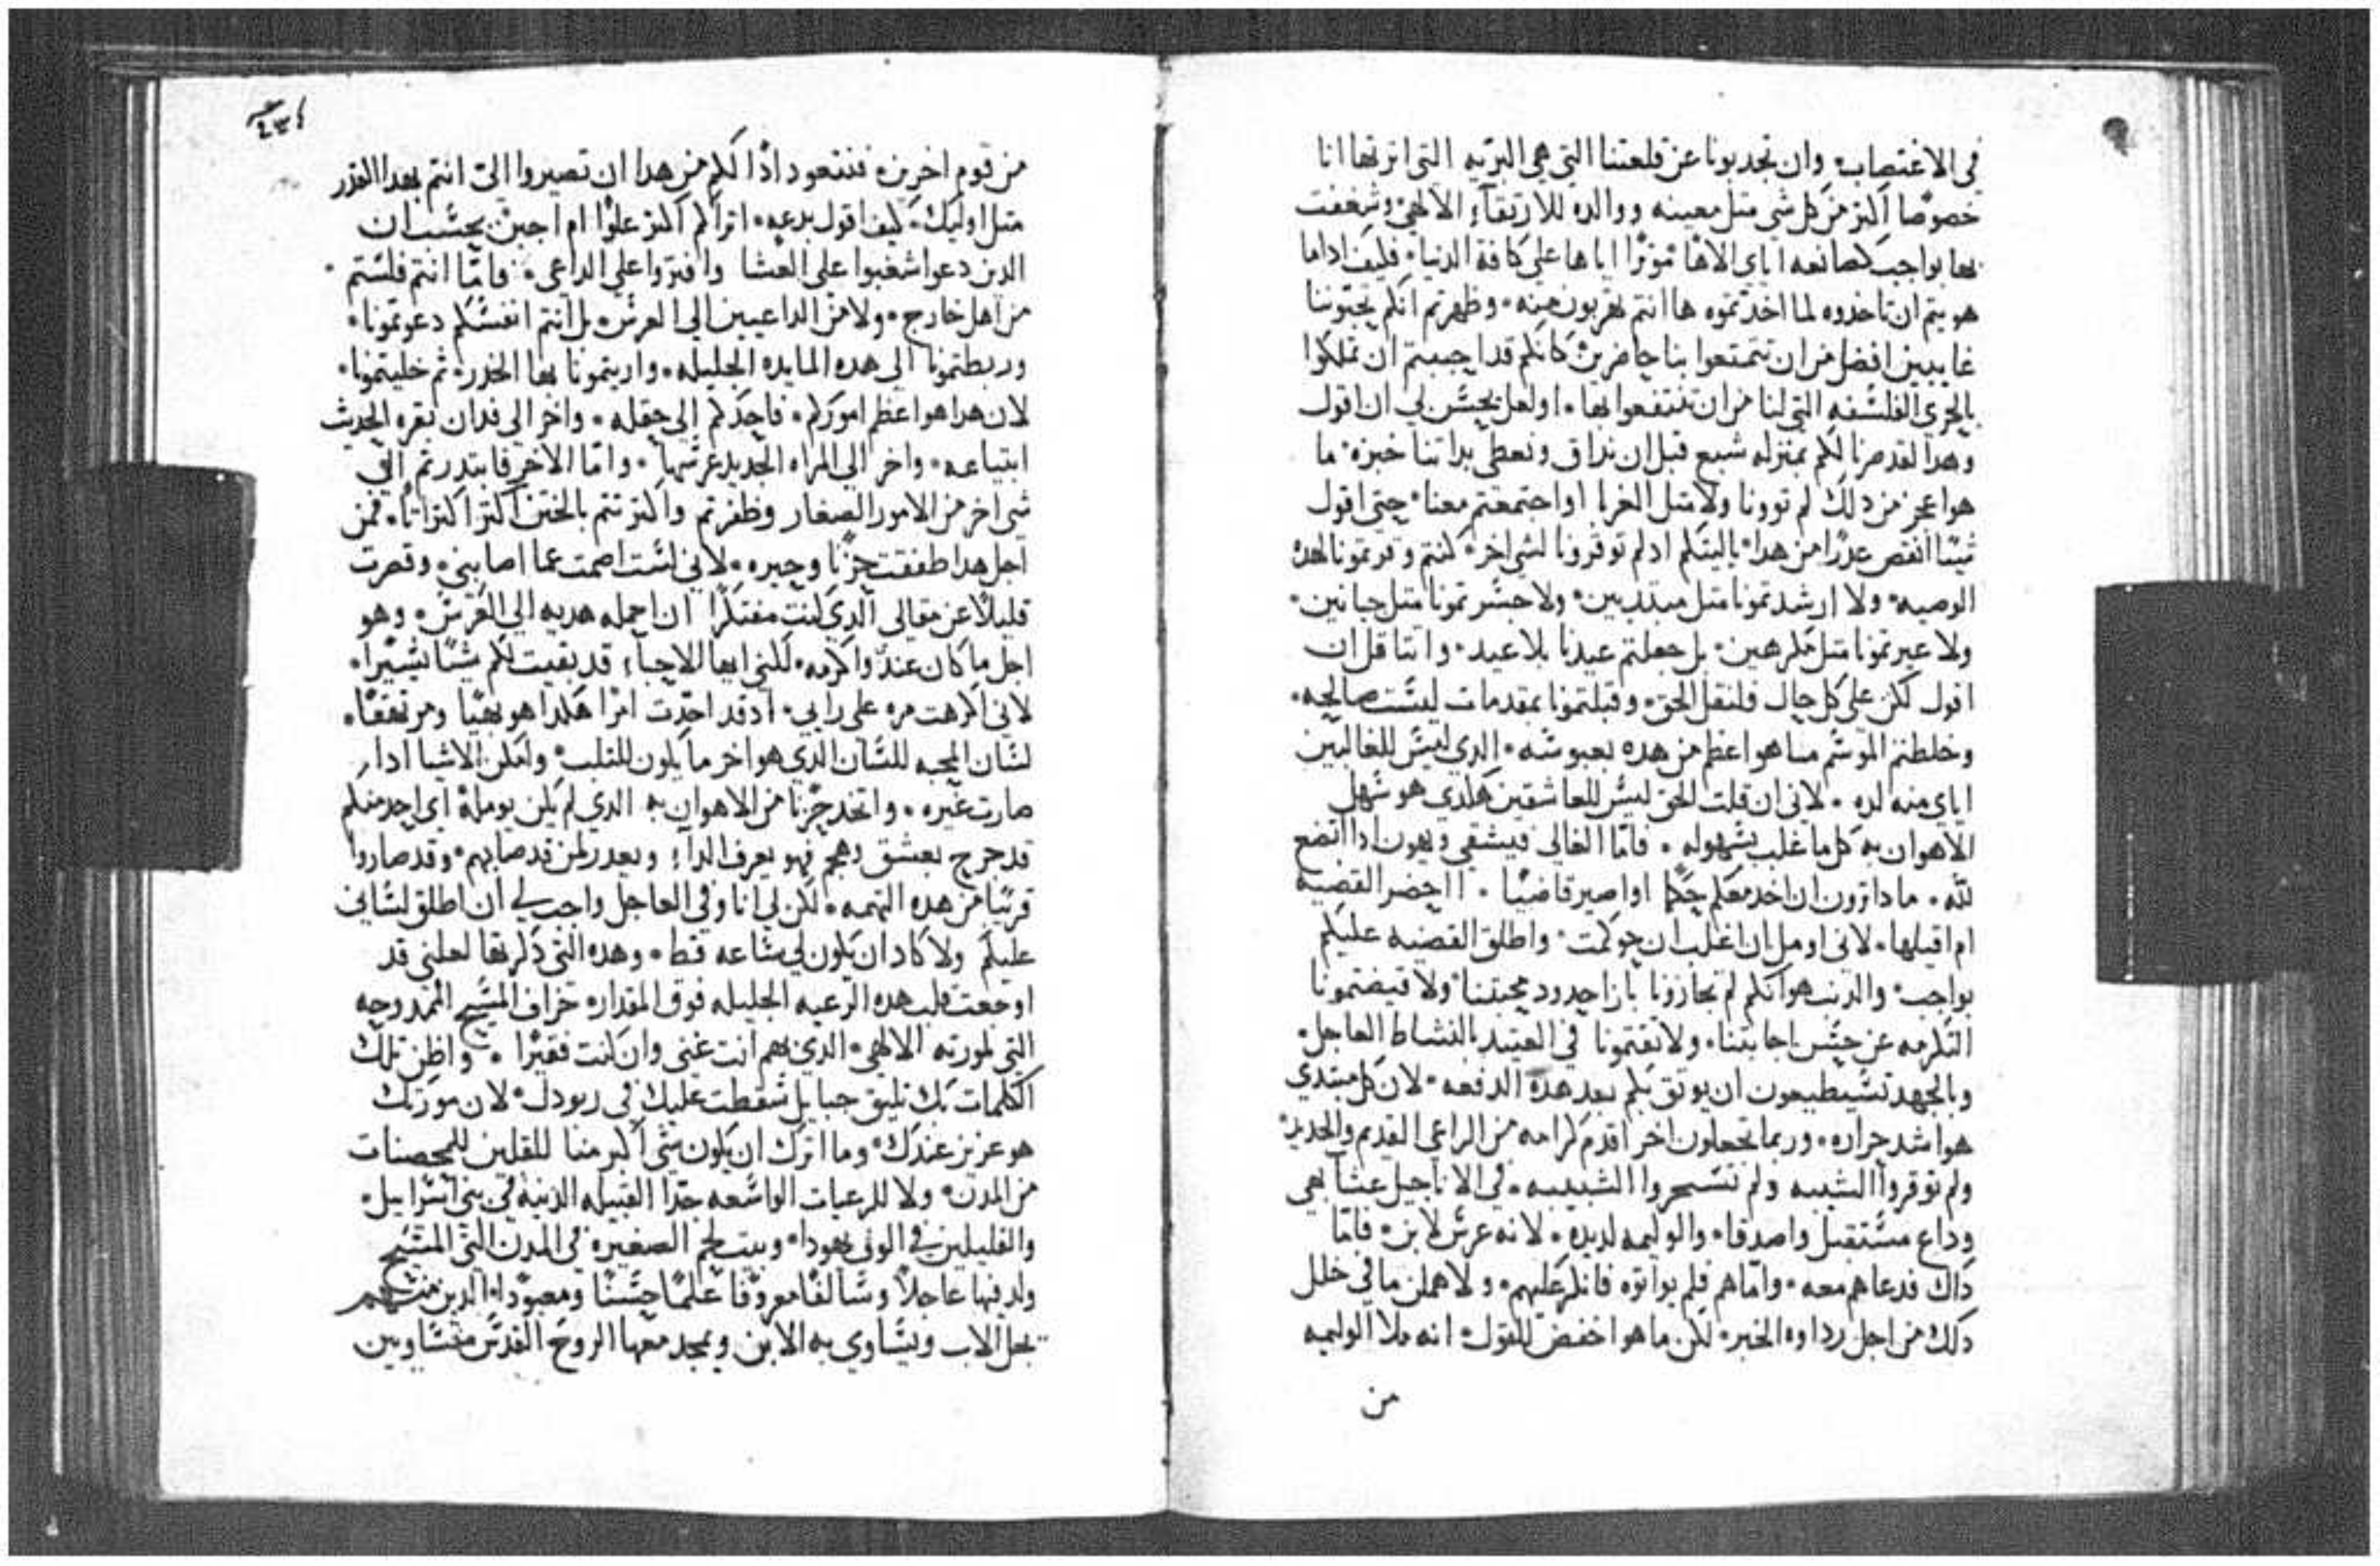 في الاغتصاب وان تجدبونا عن قلعتنا التي هي البريه التي اثرتها انا
خصوصًا اكتر من كل شي متل معينه ووالده للارتقآء الالاهي وشغفت
بها بواجب كصانعه اياي الاهًا موثرًا اياها علي كافة الدنيا فكيف اداما
هو يتم ان تاخدوه لما اخدتموه ها انتم تهربون منه وظهرتم انكم تحبوننا
غايبين افضل من ان تتمتعوا بنا حاضرين كانكم قد احببتم ان تملكوا
بالحري الفلسفه التي لنا من ان تنتفعوا بها اولعل يحسن لي ان اقول
وهدا لقد صرنا لكم بمنزلة شبع قبل ان نداق ونعطي بداتنا خبزه ما
هو اعجز من دلك لم توونا ولا متل الغربا او اجتمعتم معنا حتي اقول
شيًا انقص عدرًا من هدا ياليتكم اد لم توقرونا لشي اخر كنتم وقرتمونا لهده
الوصيه ولا ارشدتمونا متل مبتديين ولا جسرتمونا متل جبانين
ولا عبرتمونا متل مكرهين بل جعلتم عيدنا بلا عيد وانتاقل ان
اقول لكن علي كل حال فلنقل الحق وقبلتمونا بمقدمات ليست صالحه
وخلطتم الموسم مما هو اعظم من هده بعبوسه الدي ليس للغالبين
اياي منه لده لاني ان قلت الحق ليس للعاشقين هكدي هو سهل
الاهوان به كل ما غلب بسهوله فاما الغالي فيشقي ويهون ادا اتضع
لله ما دا ترون ان اخد معكم حكمًا او اصير قاضيًا ااحضر القضيه
ام اقبلها لاني اومل ان اغلب ان حوكمت واطلق القضيه عليكم
بواجب والدنب هو انكم لم تجازونا بازا حدود محبتنا ولا قبضتمونا
التكرمه عن حسن اجابتنا ولا تقتمونا في العتيد بالنشاط العاجل
وبالجهد تستطيعون ان يوتق بكم بعد هده الدفعه لان كل مبتدي
هو اشد حراره وربما تجعلون اخر اقدم كرامه من الراعي القديم والجديد
ولم توقروا الشيبه ولم تسحروا الشبيبه في الاناجيل عشآ بهي
وداع مستقبل واصدقا والوليمه لديده لانه عرس لابن فاما
داك فدعاهم معه واما هم فلم يواتوه فانكر عليهم ولاهملن ما في خلل
دلك من اجل رداوه الخبر لكن ما هو اخفض للقول انه ملا الوليمه
من
٢٣٤
من قوم اخرين فنتعود ادًا لكم من هدا ان تصيروا الي انتم بهدا القدر
متل اوليك كيف اقول بدعه اتراكم اكتر علوًا ام اجبن يحسب ان
الدين دعوا شغبوا علي العشا وافتروا علي الداعي فاما انتم فلستم
من اهل خارج ولا من الداعيين الي العرس بل انتم انفسكم دعوتمونا
وربطتمونا الي هده المايده الجليله واريتمونا بها الخدر ثم خليتمونا
لان هدا هو اعظم اموركم فاحدكم الي حقله واخر الي فدان بقره الحديث
ابتياعه واخر الي المراه الجديد عرسها واما الاخر فابتدرتم الي
شي اخر من الامور الصغار وظفرتم واكترتتم بالختن اكتر اكتراتًا فمن
اجل هدا طفقت حزنًا وحيره لاني لست اصمت عما اصابني وقصرت
قليلًا عن مقالي الدي كنت مفتكرًا ان احمله هديه الي العرس وهو
اجل ما كان عند واكرمه لكني ايها الاحبآء قد بقيت لكم شيًا يسيرًا
لاني اكرهت مره علي رايي اد قد احدّت امرًا هكدا هو بهيًا ومرتفعًا
لسان المحبه للسان الدي هو اخر ما يكون للتلب ولعلن الاشيا ادا
صارت غيره واتخد حزنًا من الاهوان به الدي لم يكن يومله اي احد منكم
قد جرح بعشق وهجم فهو يعرف الدآء ويعدر لمن قد صابهم وقد صاروا
قريبًا من هده التهمه لكن لي انا وفي العاجل واجب لي ان اطلق لساني
عليكم ولا كاد ان يكون لي ساعه قط وهده التي دكرتها لعلني قد
اوجعت قلب هده الرعيه الجليله فوق المقدار خراف المسيح الممدوحه
التي لمورته الالاهي الدي بهم انت غني وان كنت فقيرًا واظن تلك
الكلمات بك تليق حبايل سقطت عليك في ربودك لان مورتك
هو عزيز عندك وما اترك ان يكون شي اكبر منا للقلين للمحصنات
من المدن ولا للرعيات الواسعه جدًا القبيله الدنيه في بني اسراييل
والقليلين في الوف يهودا وبيت لحم الصغيره في المدن التي المسيح
ولد فيها عاجلًا وسالفًا معروفًا علمًا حسنًا ومعبودًا الدين منهم
يجل الاب ويساوي به الابن ويمجد معهما الروح القدس متساويين